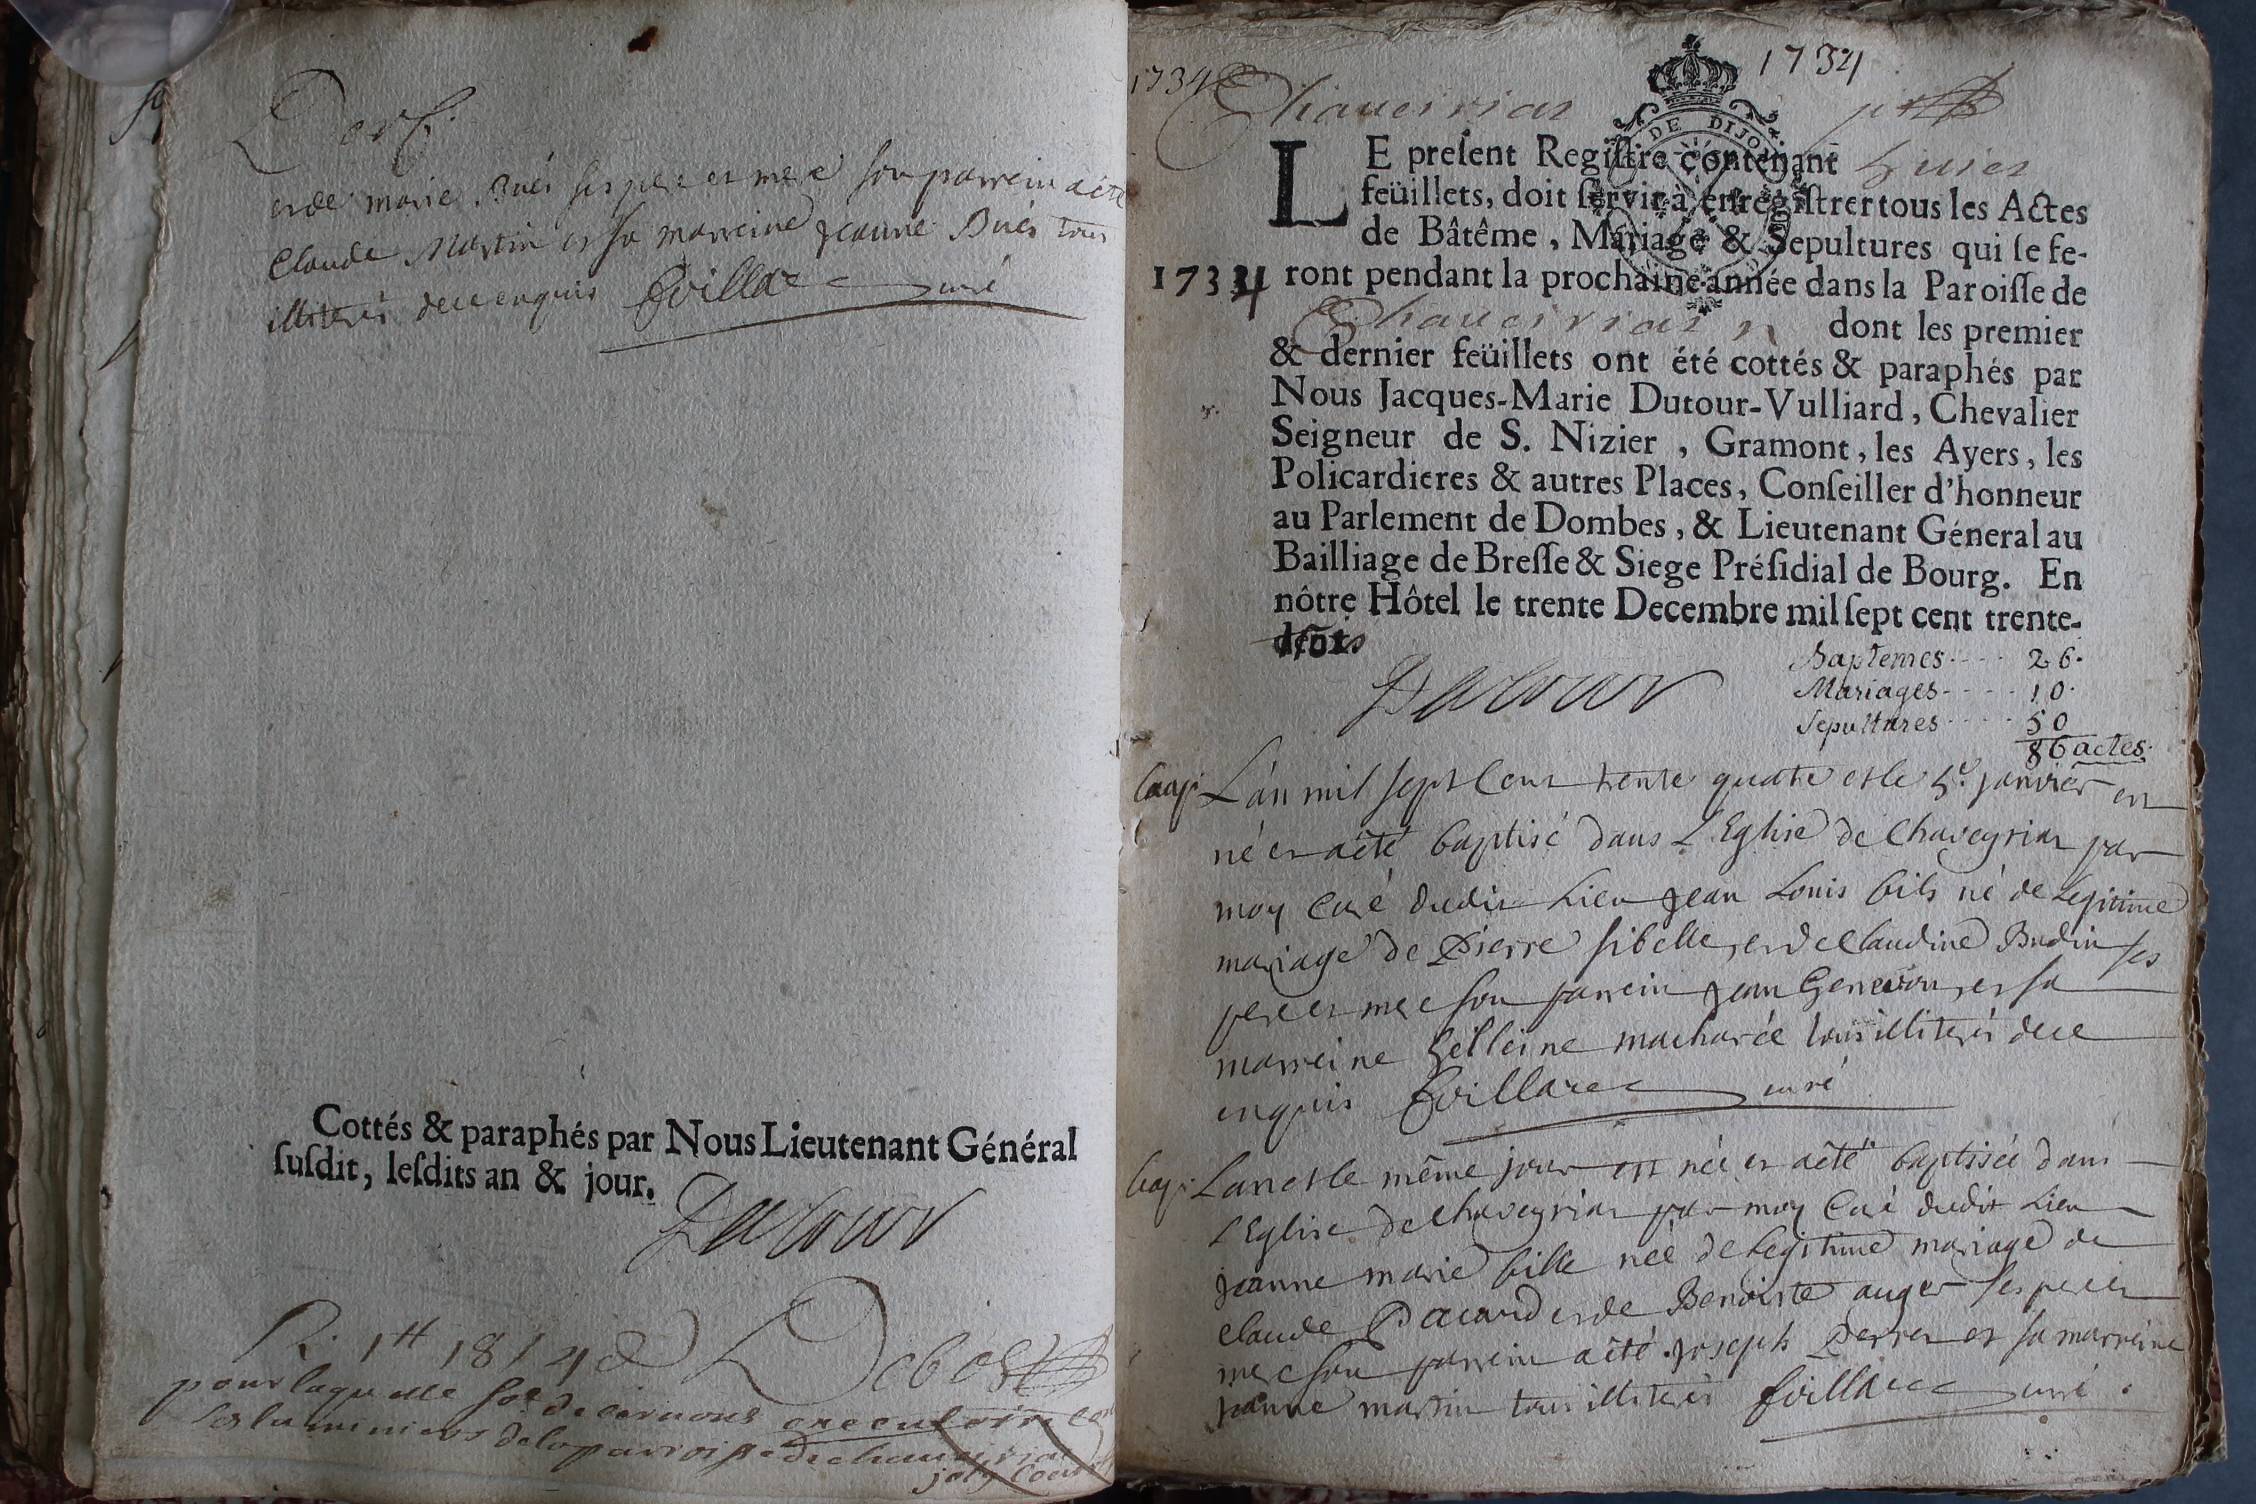 Derf.
et de marie Bués ses pere et mere son parrein a été
Claude Martin et sa marreine Jeanne Bués tous
illiterés de ce enquis curé
Cottés & paraphés par Nous Lieutenant Général
ſuſdit, leſdits an & jour.
Dutour
R. 1tt 18 s 4 d
pour laquelle de cernons executoire
les luminiers de la parroisse de chaveiriat
1734
1734
Chaveiriat
DE DIJON
LE preſent Regiſtre contenant huict
feüillets, doit ſervir à enregiſtrer tous les Actes
de Bâtême, Mariage & Sepultures qui ſe fe-
1734 ront pendant la prochaine année dans la Paroiſſe de
Chaveiriat dont les premier
& dernier feüillets ont été cottés & paraphés par
Nous Jacques-Marie Dutour-Vulliard, Chevalier
Seigneur de S. Nizier, Gramont, les Ayers, les
Policardieres & autres Places, Conſeiller d'honneur
au Parlement de Dombes, & Lieutenant Géneral au
Bailliage de Breſſe & Siege Préſidial de Bourg. En
nôtre Hôtel le trente Decembre mil ſept cent trente-
trois
Baptemes 26.
Mariages 10.
Sepultures 50
86 actes.
Dutour
bap. L'an mil sept cent trente quatre et le 5e. janvier est
né et a été baptisé dans L'Eglise de Chaveyriat par
moy curé dudit Lieu Jean Louis fils né de Legitime
mariage de Pierre Sibelle, et de Claudine Budin ses
pere et mere son parrein Jean Genevon, et sa
marreine macharée tous illiterés de ce
enquis curé
bap. L'an et le même jour est née et a été baptisée dans
L'Eglise de Chaveyriat par moy curé dudit Lieu
jeanne marie fille née de Legitime mariage de
claude Pacard et de Benoiste auger ses pere et
mere son parrein a été joseph Perret et sa marreine
jeanne martin tous illiterés curé.